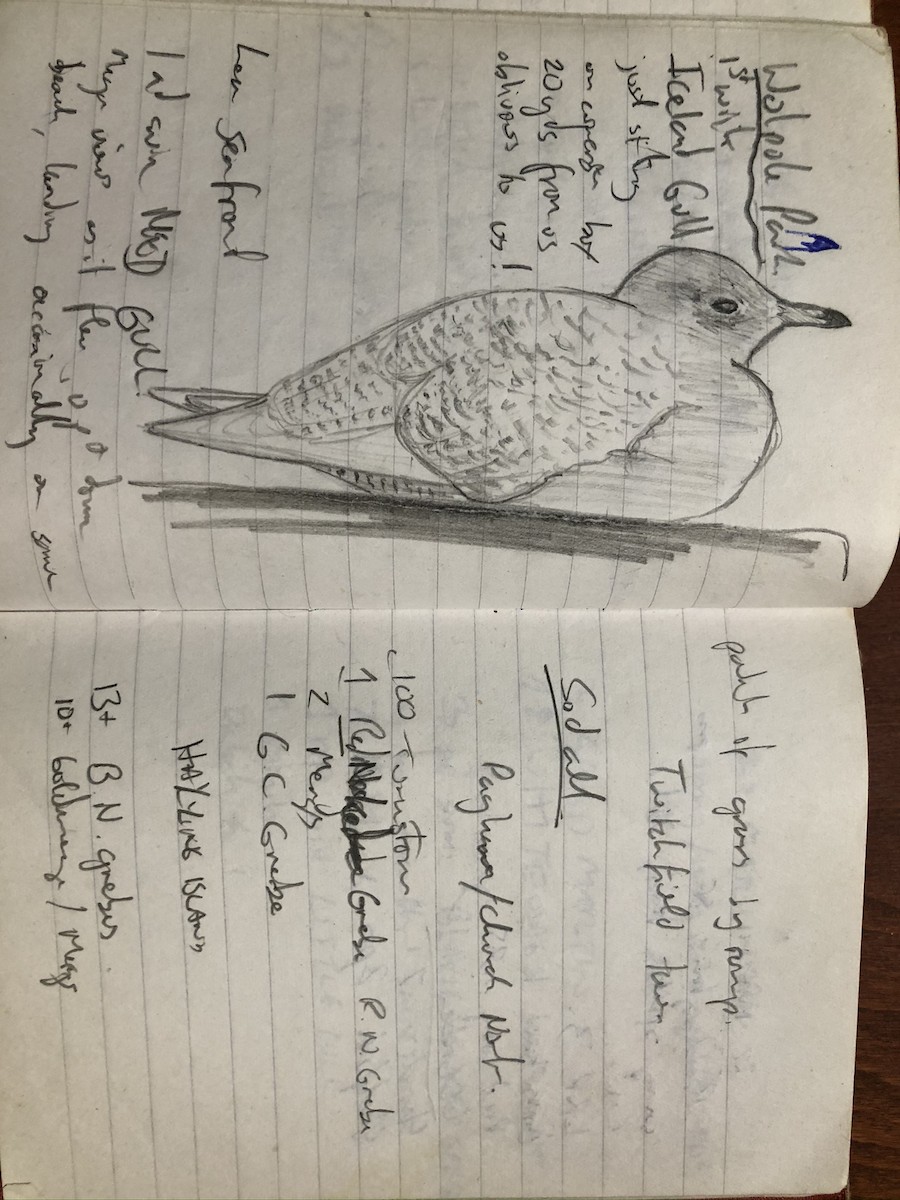 Walpole Park
1st wint
Iceland Gull
just sitting
on
20yds from us
oblivious to us!
Lee Seafront
1 ad win MED GULL!
Mega views as it flew up + down
beach, landing occasionally on small
patch of grass by
Titchfield Haven
Sod all
Pagham/church Nort.
100 Turnstone
1 Red Necked Grebe R.N. Grebe
2 Mergs
1 G.C. Grebe
HAYLING ISLAND
13+ B.N. grebes
10+ Goldeneye / Mergs